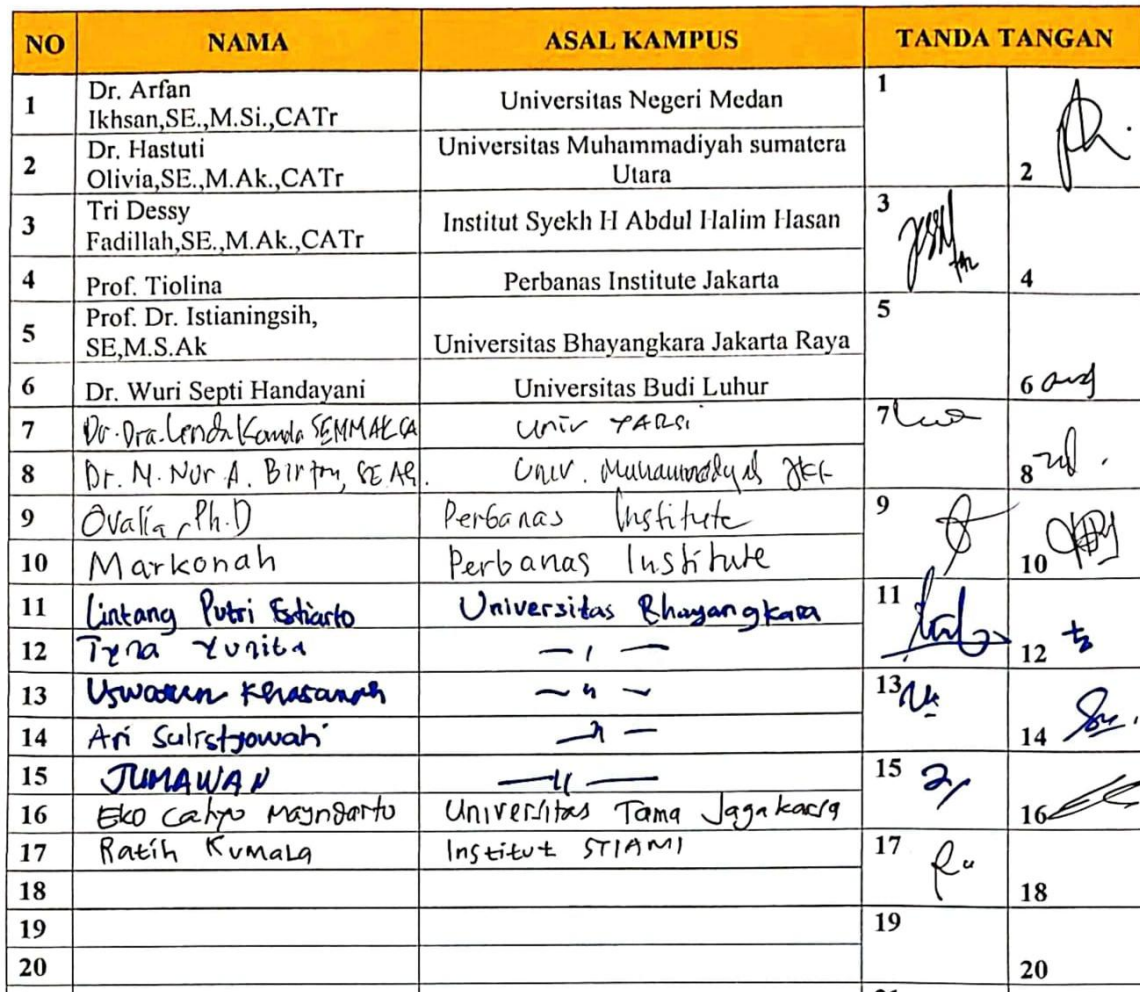 NO NAMA ASAL KAMPUS TANDA TANGAN
1 Dr. Arfan
Ikhsan,SE.,M.Si.,CATr Universitas Negeri Medan 1
2 Dr. Hastuti
Olivia,SE.,M.Ak.,CATr Universitas Muhammadiyah sumatera
Utara 2
3 Tri Dessy
Fadillah,SE.,M.Ak.,CATr Institut Syekh H Abdul Halim Hasan 3
4 Prof. Tiolina Perbanas Institute Jakarta 4
5 Prof. Dr. Istianingsih,
SE,M.S.Ak Universitas Bhayangkara Jakarta Raya 5
6 Dr. Wuri Septi Handayani Universitas Budi Luhur 6
7 Dr. Dra. Univ YARSI 7
8 Dr. M. Nur A. SE Univ. 8
9 Ovalia, Ph.D Perbanas Institute 9
10 Markonah Perbanas Institute 10
11 Lintang Putri Estiarto Universitas Bhayangkara 11
12 Tyna Yunita — ı — 12
13 Uswatun Khasanah — " — 13
14 Ari Sulistyowati — " — 14
15 JUMAWAN — " — 15
16 Eko Cahyo Mayndarto Universitas Tama Jagakarsa 16
17 Ratih Kumala Institut STIAMI 17
18 18
19 19
20 20